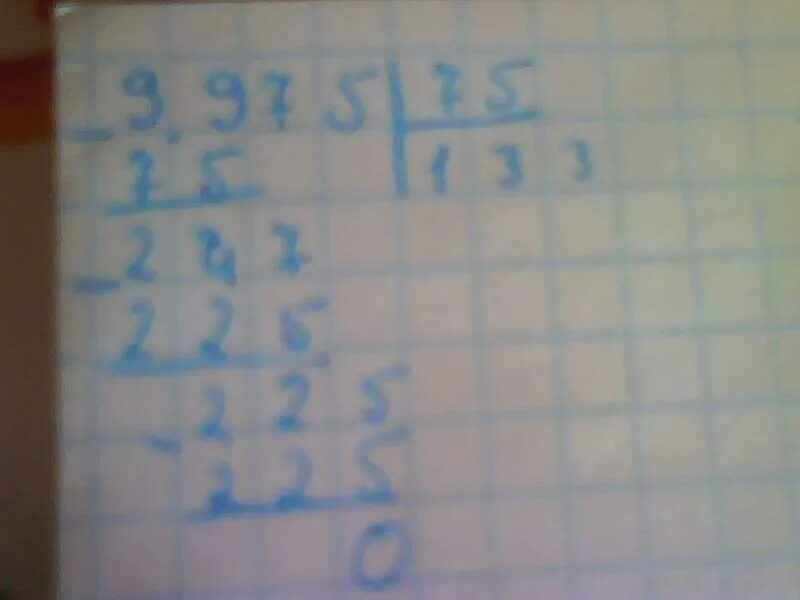 9975 75
75 133
247
225
225
225
0